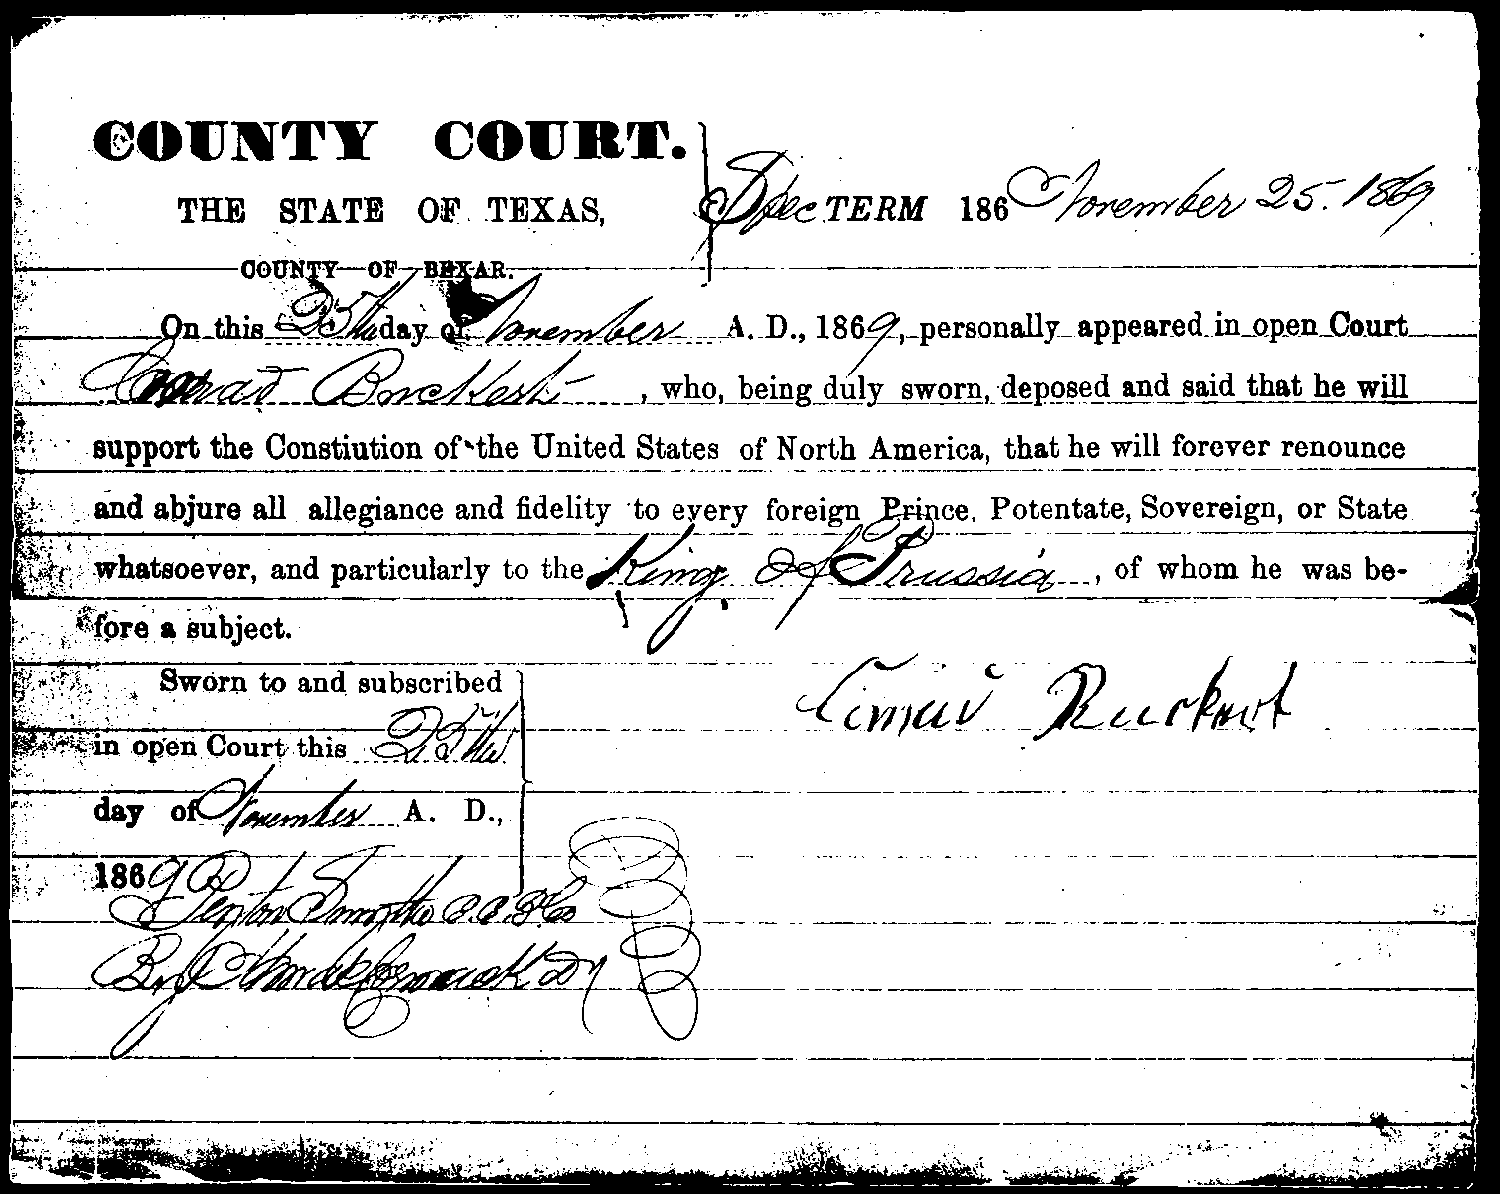 COUNTY COURT.
THE STATE OF TEXAS,
Spec TERM 186 November 25. 1869
COUNTY OF BEXAR.
On this 25th day of November A. D., 1869, personally appeared in open Court
Conrad Buckert, who, being duly sworn, deposed and said that he will
support the Constiution of the United States of North America, that he will forever renounce
and abjure all allegiance and fidelity to every foreign Prince, Potentate, Sovereign, or State
whatsoever, and particularly to the King of Prussia, of whom he was be-
fore a subject.
Sworn to and subscribed
Ruckert
in open Court this 25th
day of November A. D.,
1869
Smythe
By Dy